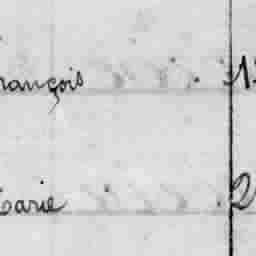 rançois 1
arie 2